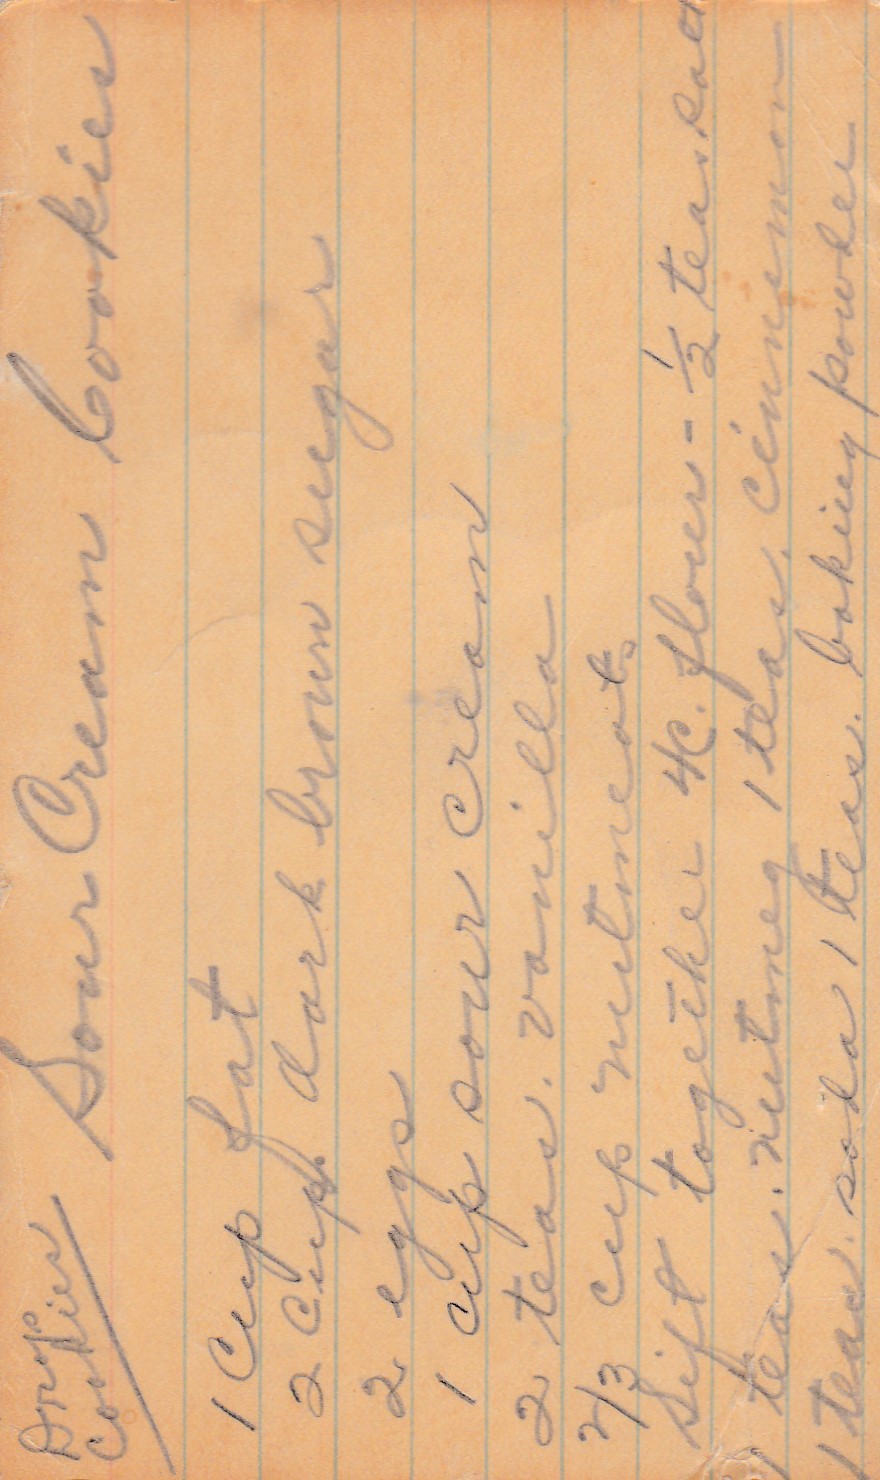 Drop
Cookies
Sour Cream Cookies
1 Cup fat
2 Cup. dark brown sugar
2 eggs
1 cup sour cream
2 teas. vanilla
2/3 cup nutmeats
Sift together 4C. flour - 1/2 teas salt
1 teas. nutmeg 1 teas. cinnamon
1 teas. soda 1 teas. baking powder